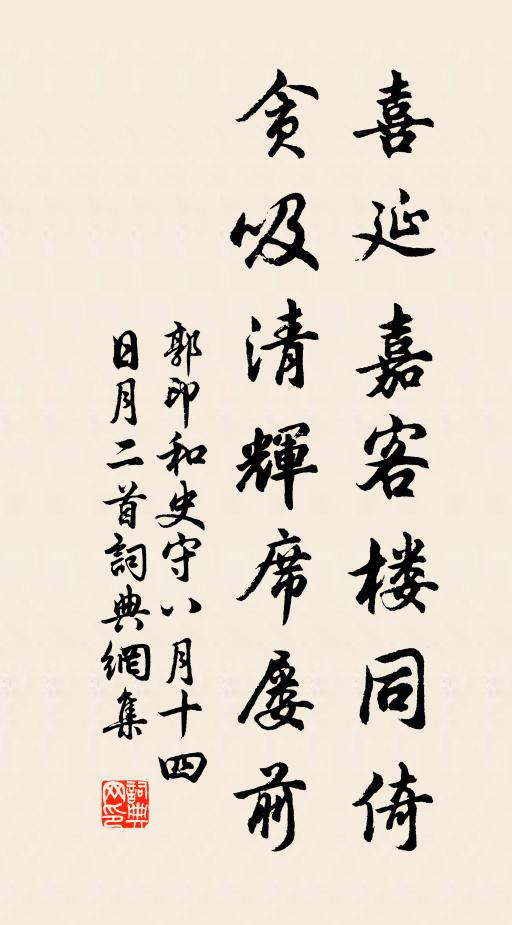 喜延嘉客楼同倚
贪吸清輝席屡前
郭印和史守八月十四
日月二首詞典網集
詞典网印